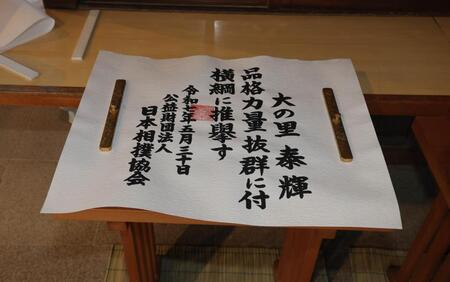 大の里 泰輝
品格力量抜群に付
横綱に推擧す
令和七年五月三十日
公益財団法人
日本相撲協会